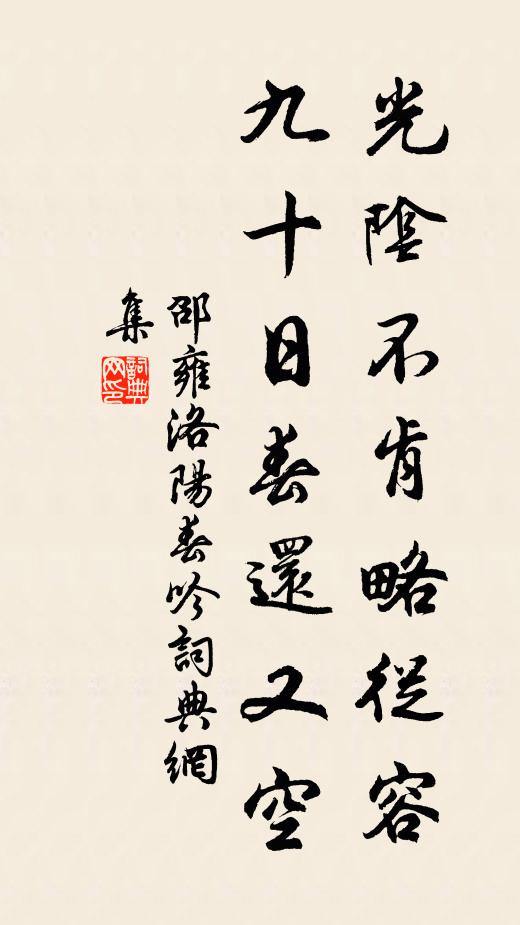 光陰不肯略從容
九十日春還又空
邵雍洛陽春吟詞典網
集
詞典網印